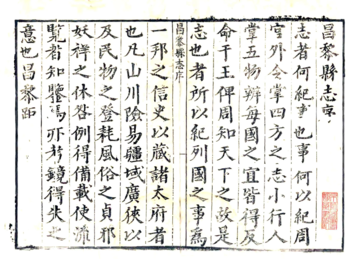 昌黎縣志序
志者何紀事也事何以紀周
官外令掌四方之志小行人
掌五物辨每國之宜皆得反
命于王俾周知天下之故是
志也者所以紀列國之事為
昌黎縣志序
一邦之信史以藏諸太府者
也凡山川險易疆域廣狹以
及民物之登耗風俗之貞邪
妖祥之休咎例得備載使流
覽者知鑒焉亦考鏡得失之
意也昌黎距